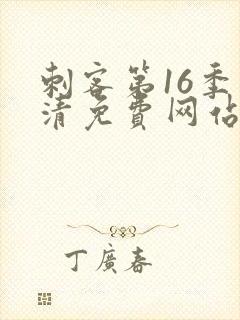 刺客第16季
清免費网佔
丁廣春